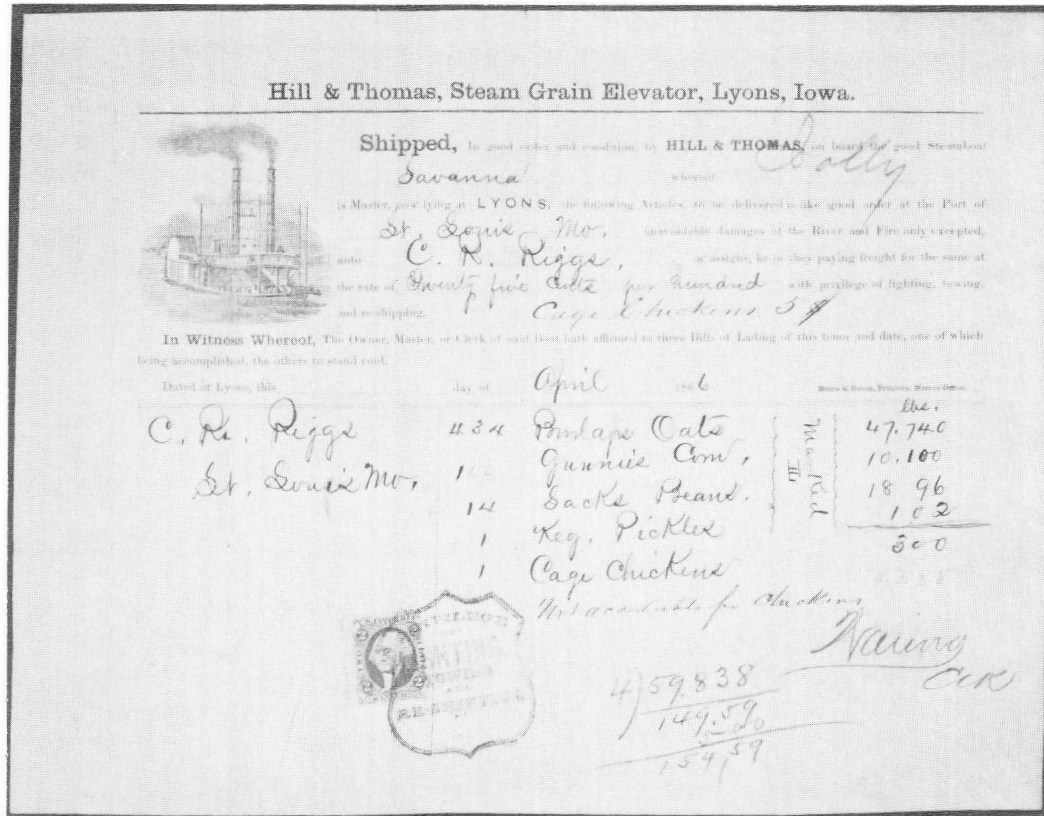 Hill & Thomas, Steam Grain Elevator, Lyons, Iowa.
Shipped, In good order and condition, by HILL & THOMAS, on board the good Steamboat
Savanna whereof Solly
is Master, now lying at LYONS, the following Articles, to be delivered in like good order at the Port of
St. Louis Mo. unavoidable damages of the River and Fire only excepted,
unto C. R. Riggs, or assigns, he or they paying freight for the same at
the rate of Twenty five cents per hundred with privilege of lighting, towing,
and re-shipping. Cage Chickens 5
In Witness Whereof, The Owner, Master, or Clerk of said Boat hath affirmed to three Bills of Lading of this tenor and date, one of which
being accomplished, the others to stand void.
Dated at Lyons, this day of April 1866
lbs.
C. R. Riggs 434 Burlaps Oats 47.740
St. Louis Mo, 100 Gunnies Corn, 10.100
14 Sacks Beans. 18 96
1 Keg. Pickles 102
1 Cage Chickens 500
Marked
Not accountable for chickens
PRIVILEGE
TOWING
AND
RE-SHIPPING
4) 59.838
149.59
154,59